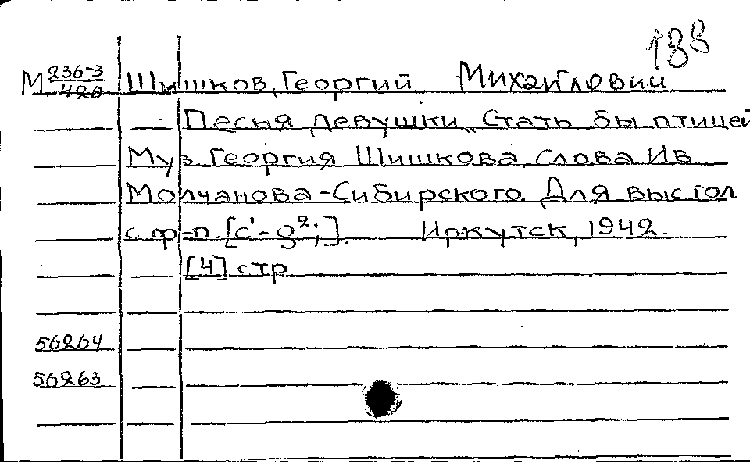 188
М 236-3 Шишков, Георгий Михайлович
420
Песня девушки „Стать бы птицей
Муз Георгия Шишкова, слова Ив
Молчанова-Сибирского. Для выс гол
с ф-п. [c'-g²;]. Иркутск, 1942.
[4] стр
56264
56263